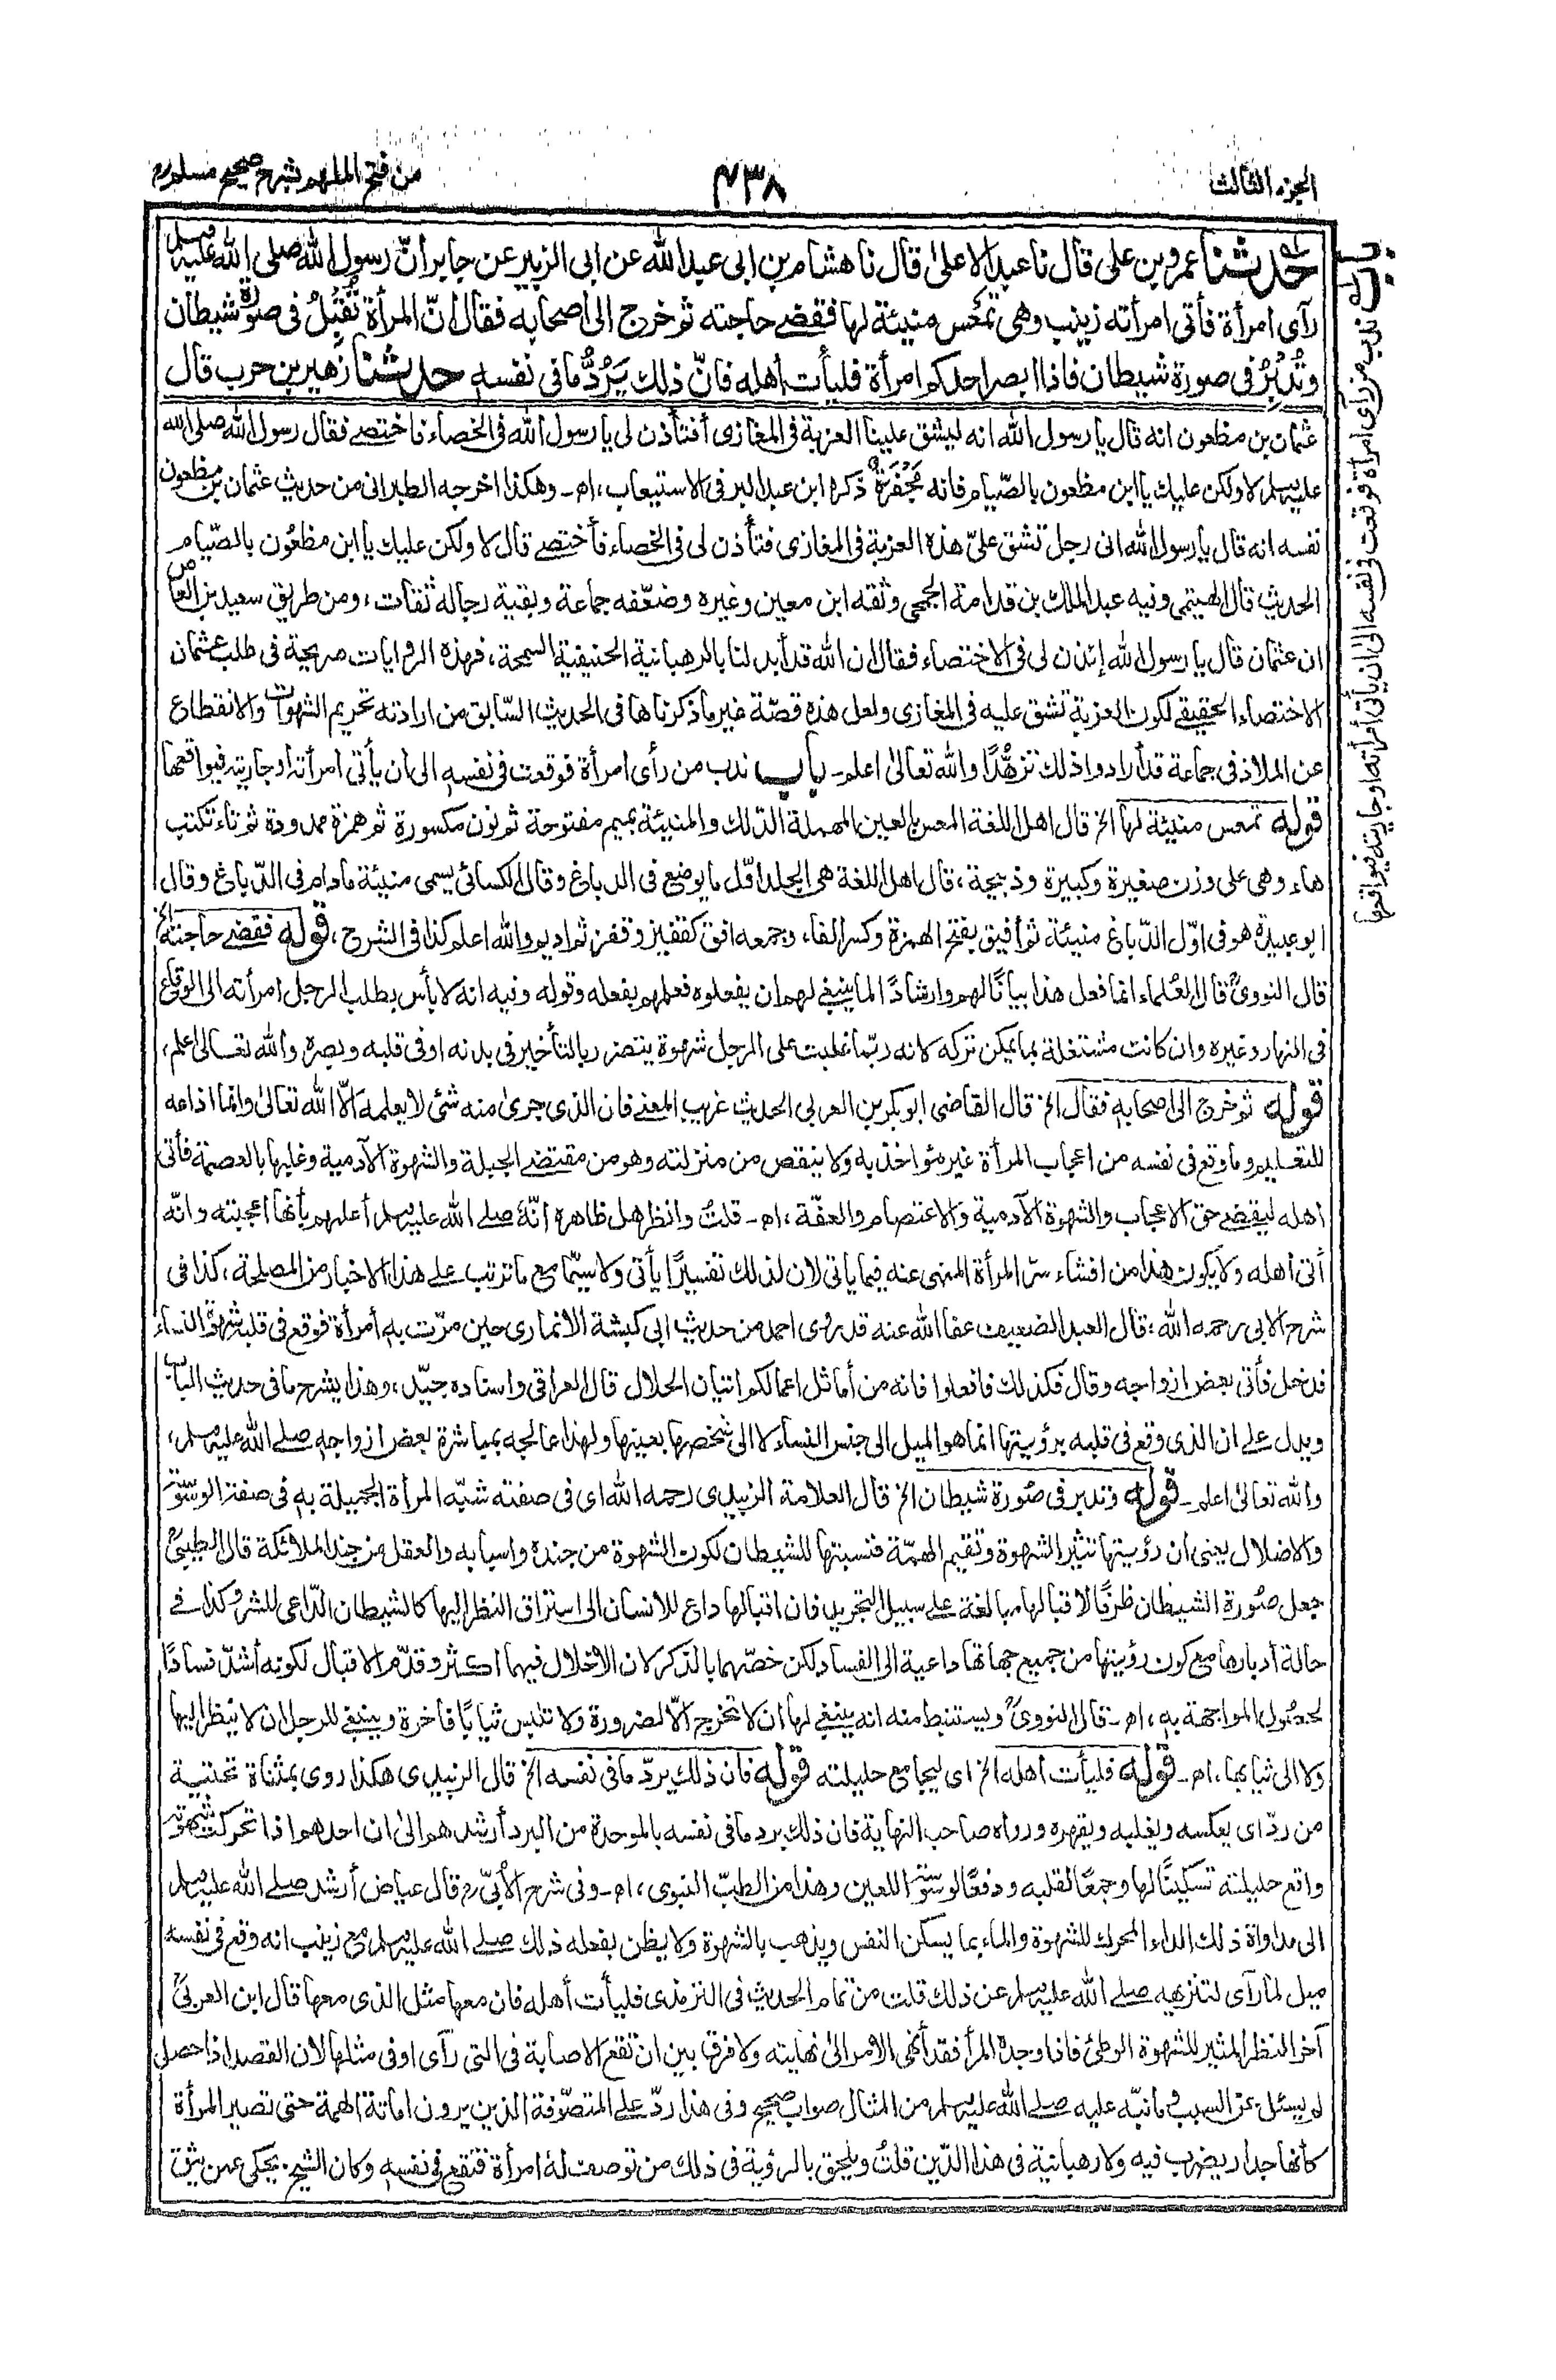 الجزء الثالث
٤٣٨
من فتح الملهم بشرح صحيح مسلم رح
حدثنا عمرو بن على قال نا عبد الاعلىٰ قال نا هشام بن ابى عبد الله عن ابى الزبير عن جابر انّ رسول الله صلى الله عليه وسلم
رآى امرأة فأتى امرأته زينب وهى تمعس منيئة لها فقضے حاجته ثم خرج الى اصحابه فقال انّ المرأة تُقبِلُ فى صورة شيطان
وتُدْبِرُ فى صورة شيطان فاذا ابصر احدكم امرأة فليأت أهله فانّ ذلك يَرُدُّ ما فى نفسه حدثنا زهير بن حرب قال
باب ندب من رأى امرأة فوقعت فى نفسه الى ان يأتى امرأته او جاريته فيواقعها
عثمان بن مظعون انه قال يا رسول الله انه ليشق علينا العزبة فى المغازى أفتأذن لى يا رسول الله فى الخصاء فاختصے فقال رسول الله صلى الله
عليه وسلم لا ولكن عليك يا ابن مظعون بالصّيام فانه مُجْفَرَة ذكره ابن عبد البر فى الاستيعاب، اھ ـ وهكذا اخرجه الطبرانى من حديث عثمان بن مظعون
نفسه انه قال يا رسول الله انى رجل تشق علىّ هذه العزبة فى المغازى فتأذن لى فى الخصاء فأختصے قال لا ولكن عليك يا ابن مظعُون بالصّيام
الحديث قال الهيتمى وفيه عبد الملك بن قدامة الجمحى وثقه ابن معين وغيره وضعّفه جماعة وبقية رجاله ثقات، ومن طريق سعيد بن العاص
ان عثمان قال يا رسول الله إئذن لى فى الاختصاء فقال ان الله قد أبدلنا بالرهبانية الحنيفية السمحة، فهذه الروايات صريحة فى طلب عثمان
الاختصاء الحقيقے لكون العزبة تشق عليه فى المغازى ولعل هذه قصّة غير ما ذكرناها فى الحديث السّابق من ارادته تحريم الشهوات والانقطاع
عن الملاذ فى جماعة قد أرادوا ذلك تزهُّدًا والله تعالىٰ اعلم ـ باب ندب من رأى امرأة فوقعت فى نفسه الى ان يأتى امرأته او جاريته فيواقعها
قوله تمعس منيئة لها الخ قال اهل اللغة المعس بالعين المهملة الدّلك والمنيئة بميم مفتوحة ثم نون مكسورة ثم همزة ممدودة ثم تاء تكتب
هاء وهى على وزن صغيرة وكبيرة وذبيحة، قال اهل اللغة هى الجلد اوّل ما يوضع فى الدباغ وقال الكسائى يسمى منيئة ما دام فى الدّباغ وقال
ابو عبيدة هو فى اوّل الدّباغ منيئة ثم أفيق بفتح الهمزة وكسر الفاء، وجمعه افق كقفيز وقفز ثم اديم والله اعلم كذا فى الشرح، قوله فقضے حاجته الخ
قال النووىؒ قال العُلماء انما فعل هذا بيانًا لهم وارشادًا لما ينبغے لهم ان يفعلوه فعلمهم بفعله وقوله وفيه انه لا بأس بطلب الرجل امرأته الى الوقاع
فى النهار وغيره وان كانت مشتغلة بما يمكن تركه لانه ربّما غلبت على الرجل شهوة يتضرر بالتأخير فى بدنه او فى قلبه وبصره والله تعالىٰ اعلم،
قوله ثم خرج الى اصحابه فقال الخ قال القاضى ابو بكر بن العربى الحديث غريب المعنے فان الذى جرى منه شئ لا يعلمه الّا الله تعالىٰ وانما اذاعه
للتعليم وما وقع فى نفسه من اعجاب المرأة غير مؤاخذ به ولا ينقص من منزلته وهو من مقتضے الجبلة والشهوة الآدمية وغلبها بالعصمة فأتى
اهله ليقضے حق الاعجاب والشهوة الآدمية والاعتصام والعفّة، اھ ـ قلتُ وانظر هل ظاهره انّهٗ صلے الله عليه وسلم أعلمهم بأنها اعجبته وانّه
أتى أهله ولا يكون هذا من افشاء سرّ المرأة المنهى عنه فيما يأتى لان لذلك تفسيرًا يأتى ولا سيّما مع ما ترتب علے هذا الاخبار من المصلحة، كذا فى
شرح الابى رحمه الله؛ قال العبد الضعيف عفا الله عنه قد روى احمد من حديث ابى كبشة الانمارى حين مرّت به امرأة فوقع فى قلبه شهوة النساء
فدخل فأتى بعض ازواجه وقال فكذلك فافعلوا فانه من أماثل اعمالكم اتيان الحلال قال العراقى واسناده جيّد، وهذا يشرح ما فى حديث الباب
ويدل علے ان الذى وقع فى قلبه برؤيتها انما هو الميل الى جنس النساء لا الى شخصها بعينها ولهذا عالجه بمباشرة بعض ازواجه صلے الله عليه وسلم،
والله تعالىٰ اعلم ـ قوله وتدبر فى صُورة شيطان الخ قال العلامة الزبيدى رحمه الله اى فى صفته شبّه المرأة الجميلة به فى صفة الوسوسة
والاضلال يعنى ان رؤيتها تثير الشهوة وتقيم الهمّة فنسبتها للشيطان لكون الشهوة من جنده واسبابه والعقل من جند الملائكة قال الطيبىؒ
جعل صُورة الشيطان ظرفًا لاقبالها مبالغة علے سبيل التجريد فان اقبالها داع للانسان الى استراق النظر اليها كالشيطان الدّاعى للشر وكذا فے
حالة أدبارها مع كون رؤيتها من جميع جهاتها داعية الى الفساد لكن خصّهما بالذكر لان الاخلال فيهما اكثر وقدّم الاقبال لكونه أشدّ فسادًا
لحصُول المواجهة به، اھ ـ قال النووىؒ ويستنبط منه انه ينبغے لها ان لا تخرج الّا لضرورة ولا تلبس ثيابًا فاخرة وينبغے للرجل ان لا ينظر اليها
ولا الى ثيابها، اھ ـ قوله فليأت اهله الخ اى ليجامع حليلته قوله فان ذلك يردّ ما فى نفسه الخ قال الزبيدى هكذا روى بمثناة تحتية
من ردّ اى يعكسه ويغلبه ويقهره ورواه صاحب النهاية فان ذلك برد ما فى نفسه بالموحدة من البرد أرشدهم الىٰ ان احدهم اذا تحركت شهوته
واقع حليلته تسكينًا لها وجمعًا لقلبه ودفعًا لوسوسة اللعين وهذا من الطبّ النبوى، اھ ـ وفى شرح الأبىّ رح قال عياض أرشد صلے الله عليه وسلم
الى مداواة ذلك الداء المحرك للشهوة والماء بما يسكن النفس ويذهب بالشهوة ولا يظن بفعله ذلك صلے الله عليه وسلم مع زينب انه وقع فى نفسه
ميل لما رآى لتنزهه صلے الله عليه وسلم عن ذلك قلت من تمام الحديث فى الترمذى فليأت أهله فان معها مثل الذى معها قال ابن العربىؒ
آخر النظر المثير للشهوة الوطئ فاذا وجده المرأ فقد أنهى الامر الىٰ نهايته ولا فرق بين ان تقع الاصابة فى التى رآى او فى مثلها لان القصد اذا حصل
لم يسئل عن السبب وما نبّه عليه صلے الله عليه وسلم من المثال صواب صحيح وفى هذا ردّ علے المتصوّفة الذين يرون اماتة الهمة حتى تصير المرأة
كأنها جدار يضرب فيه ولا رهبانية فى هذا الدّين قلتُ ويلحق بالرؤية فى ذلك من توصف لهٗ امرأة فتقع فى نفسه وكان الشيخ يحكى عمن يثق